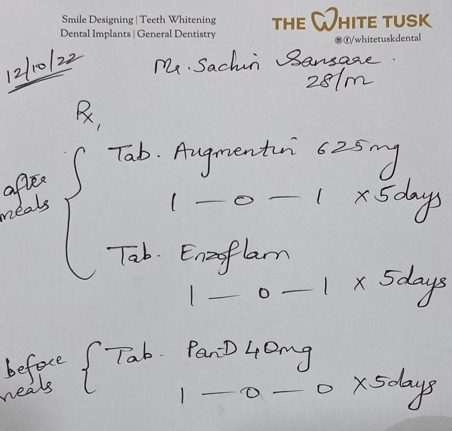 Smile Designing | Teeth Whitening
Dental Implants | General Dentistry
THE WHITE TUSK
/whitetuskdental
12/10/22
Mr. Sachin Sansare.
28/M
Rx,
after meals
Tab. Augmentin 625mg
1 — 0 — 1 x 5days
Tab. Enzoflam
1 — 0 — 1 x 5days
before meals
Tab. Pan-D 40mg
1 — 0 — 0 x 5days